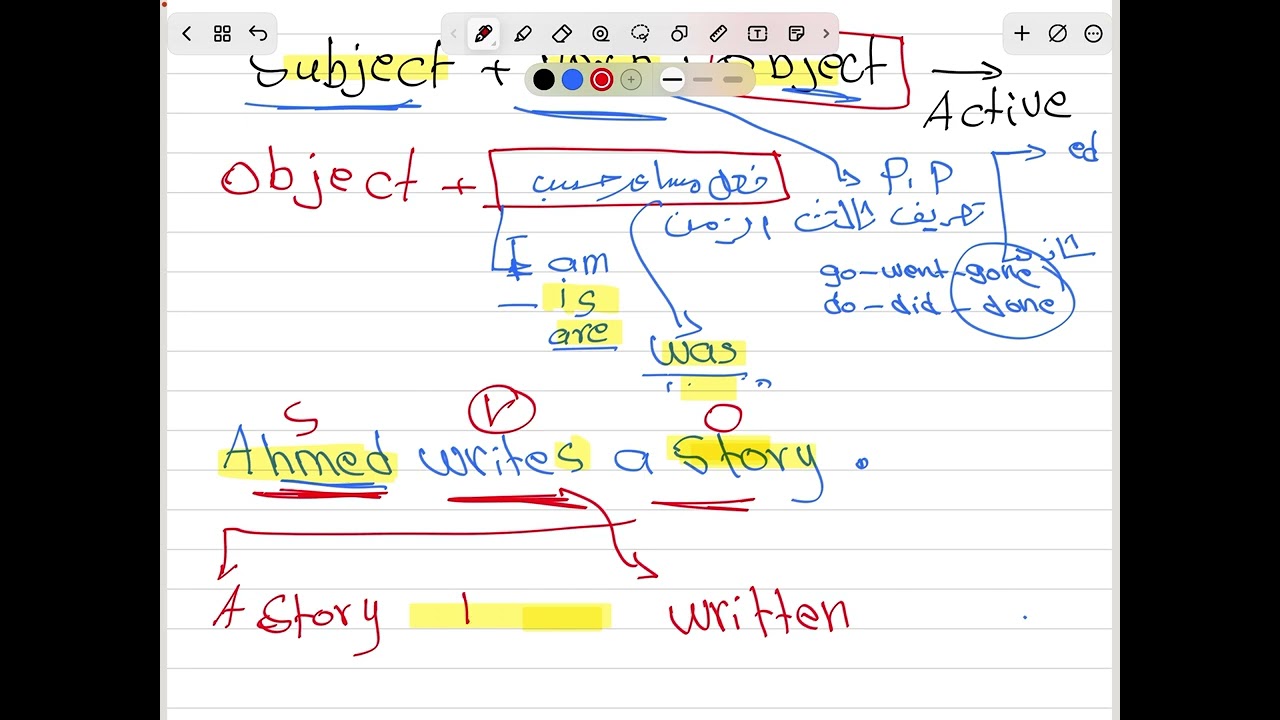 Subject + Object → Active
Object + فعل مساعد حسب P.P → ed
تصريف ثالث الزمن
I am شاذ
is go-went-gone
are do-did-done
was
S V O
Ahmed writes a Story .
A Story written